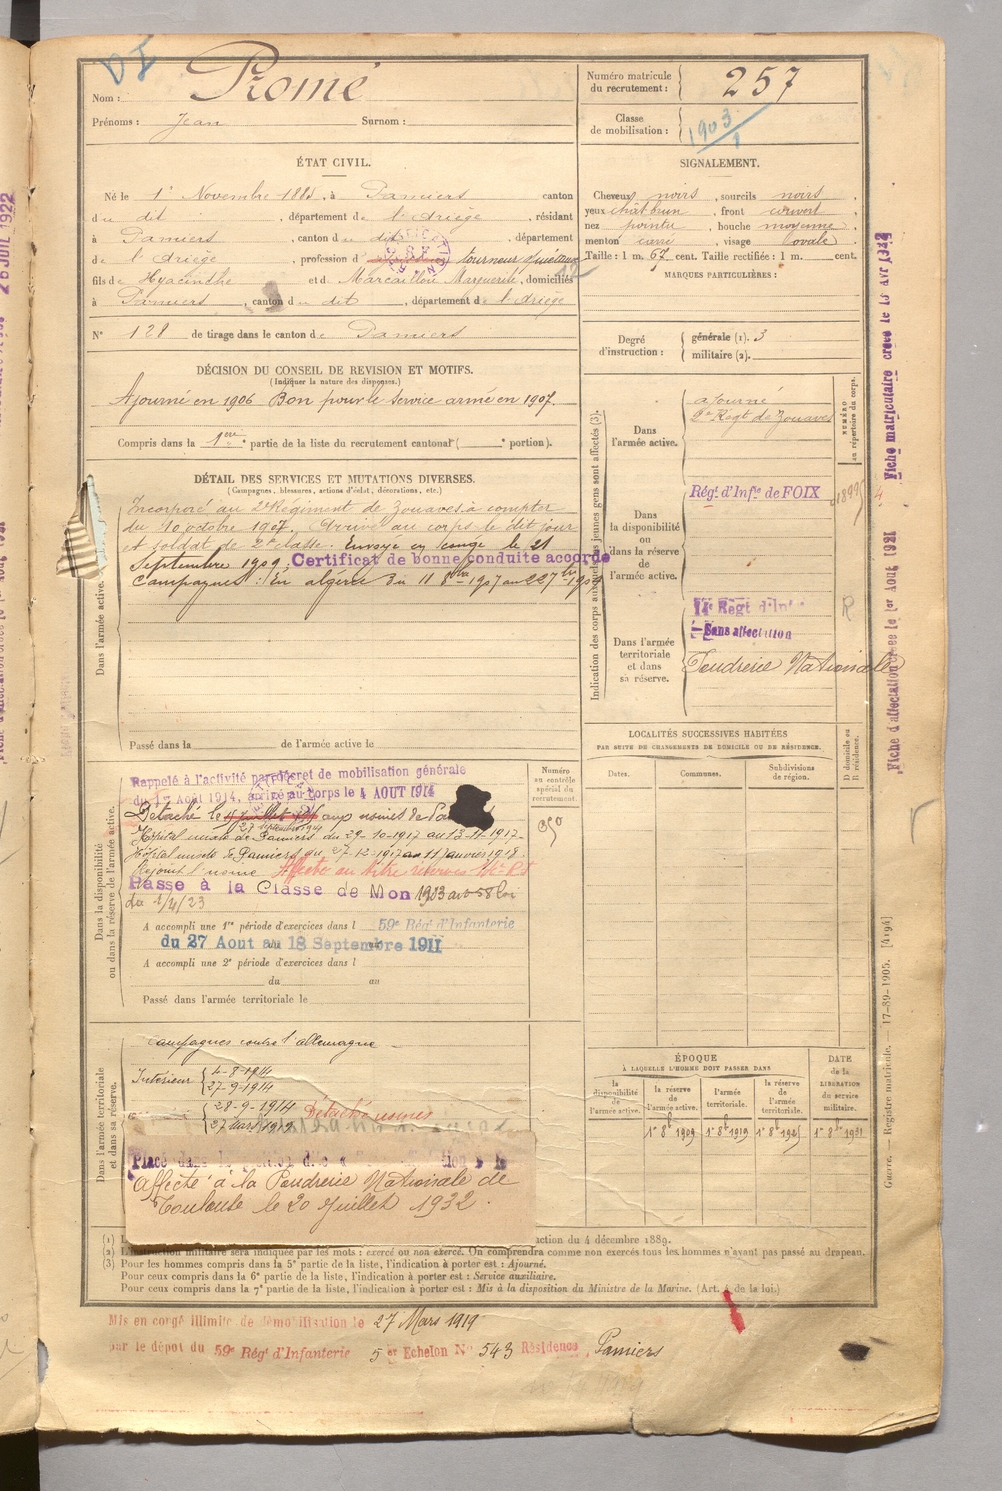 Nom : Romé
Prénoms : Jean Surnom :
Numéro matricule du recrutement : 257
Classe de mobilisation : 1903
ÉTAT CIVIL.
Né le 1er Novembre, à Pamiers canton
du dit, département de l'Ariège, résidant
à Pamiers, canton du dit, département
de l'Ariège, profession de tourneur
fils de Hyacinthe et de Marcaillou Marguerite, domiciliés
à Pamiers, canton du dit, département de l'Ariège
N° 128 de tirage dans le canton de Pamiers
SIGNALEMENT.
Cheveux noirs, sourcils noirs,
yeux chât brun, front couvert,
nez pointu, bouche moyenne,
menton carré, visage ovale.
Taille : 1 m. 67 cent. Taille rectifiée : 1 m. cent.
MARQUES PARTICULIÈRES :
Degré d'instruction :
générale (1). 3
militaire (2).
DÉCISION DU CONSEIL DE REVISION ET MOTIFS.
(Indiquer la nature des dispenses.)
Ajourné en 1906 Bon pour le service armé en 1907.
Compris dans la 1ère partie de la liste du recrutement cantonal ( portion).
DÉTAIL DES SERVICES ET MUTATIONS DIVERSES.
(Campagnes, blessures, actions d'éclat, décorations, etc.)
Dans l'armée active.
Incorporé au 2e Régiment de Zouaves à compter
du 10 octobre 1907. Arrivé au corps le dit jour
et soldat de 2e classe. Envoyé en congé le 21
Septembre 1909. Certificat de bonne conduite accordé
Campagnes : En algérie du 11 8bre 1907 au 22 7bre 1909
Passé dans la de l'armée active le
Indication des corps auxquels les jeunes gens sont affectés (3).
NUMÉRO au répertoire du corps.
Dans l'armée active.
ajourné
2e Regt de Zouaves
Dans la disponibilité ou dans la réserve de l'armée active.
Régt d'Infie de FOIX
1899
Dans l'armée territoriale et dans sa réserve.
14e Regt d'Inf
Sans affectation
R
Poudrerie Nationale
LOCALITÉS SUCCESSIVES HABITÉES
PAR SUITE DE CHANGEMENTS DE DOMICILE OU DE RÉSIDENCE.
Dates. Communes. Subdivisions de région.
D domicile ou R résidence.
Dans la disponibilité ou dans la réserve de l'armée active.
Numéro au contrôle spécial du recrutement.
Rappelé à l'activité par décret de mobilisation générale
du 1er Aout 1914, arrivé au corps le 4 AOUT 1914
Détaché le aux usines de
27 septembre 1914
Hôpital mixte de Pamiers du 29-10-1917 au 13-11-1917
Hôpital mixte de Pamiers du 27-12-1917 au 11 janvier 1918.
Rejoint l'usine
Passé à la Classe de Mon 1903 art 58 loi
du 1/4/23
A accompli une 1re période d'exercices dans l 59e Régt d'Infanterie
du 27 Aout au 18 Septembre 1911
A accompli une 2e période d'exercices dans l
du au
Passé dans l'armée territoriale le
Dans l'armée territoriale et dans sa réserve.
Campagnes contre l'allemagne
Intérieur
4-8-1914
27-9-1914
28-9-1914 Détaché usines
27 mars 1919
affecté à la Poudrerie Nationale de
Toulouse le 20 Juillet 1932.
ÉPOQUE
À LAQUELLE L'HOMME DOIT PASSER DANS
DATE de la LIBÉRATION du service militaire.
la disponibilité de l'armée active.
la réserve de l'armée active.
l'armée territoriale.
la réserve de l'armée territoriale.
1er 8bre 1909 1er 8bre 1919 1er 8bre 1925 1er 8bre 1931
action du 4 décembre 1889.
(2) L'instruction militaire sera indiquée par les mots : exercé ou non exercé. On comprendra comme non exercés tous les hommes n'ayant pas passé au drapeau.
(3) Pour les hommes compris dans la 5e partie de la liste, l'indication à porter est : Ajourné.
Pour ceux compris dans la 6e partie de la liste, l'indication à porter est : Service auxiliaire.
Pour ceux compris dans la 7e partie de la liste, l'indication à porter est : Mis à la disposition du Ministre de la Marine. (Art. 4 de la loi.)
Mis en congé illimité de démobilisation le 27 Mars 1919
par le dépot du 59e Régt d'Infanterie 5er Echelon N° 543 Résidence Pamiers
Fiche matriculaire créée le 15 Avr 1932
Fiche d'affectation créée le 1er Aout 1921
Guerre. — Registre matricule. — 17-89-1905. [4194]